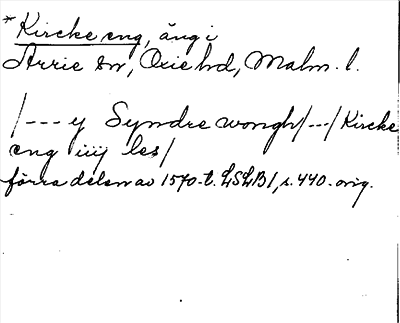 *Kircke eng, äng i
Arrie sn, Oxie hd, Malm. l.
/--- y Syndre wongh/---/Kircke
eng iiij les/
förra delen av 1570-t. LSLB1, s. 440. orig.